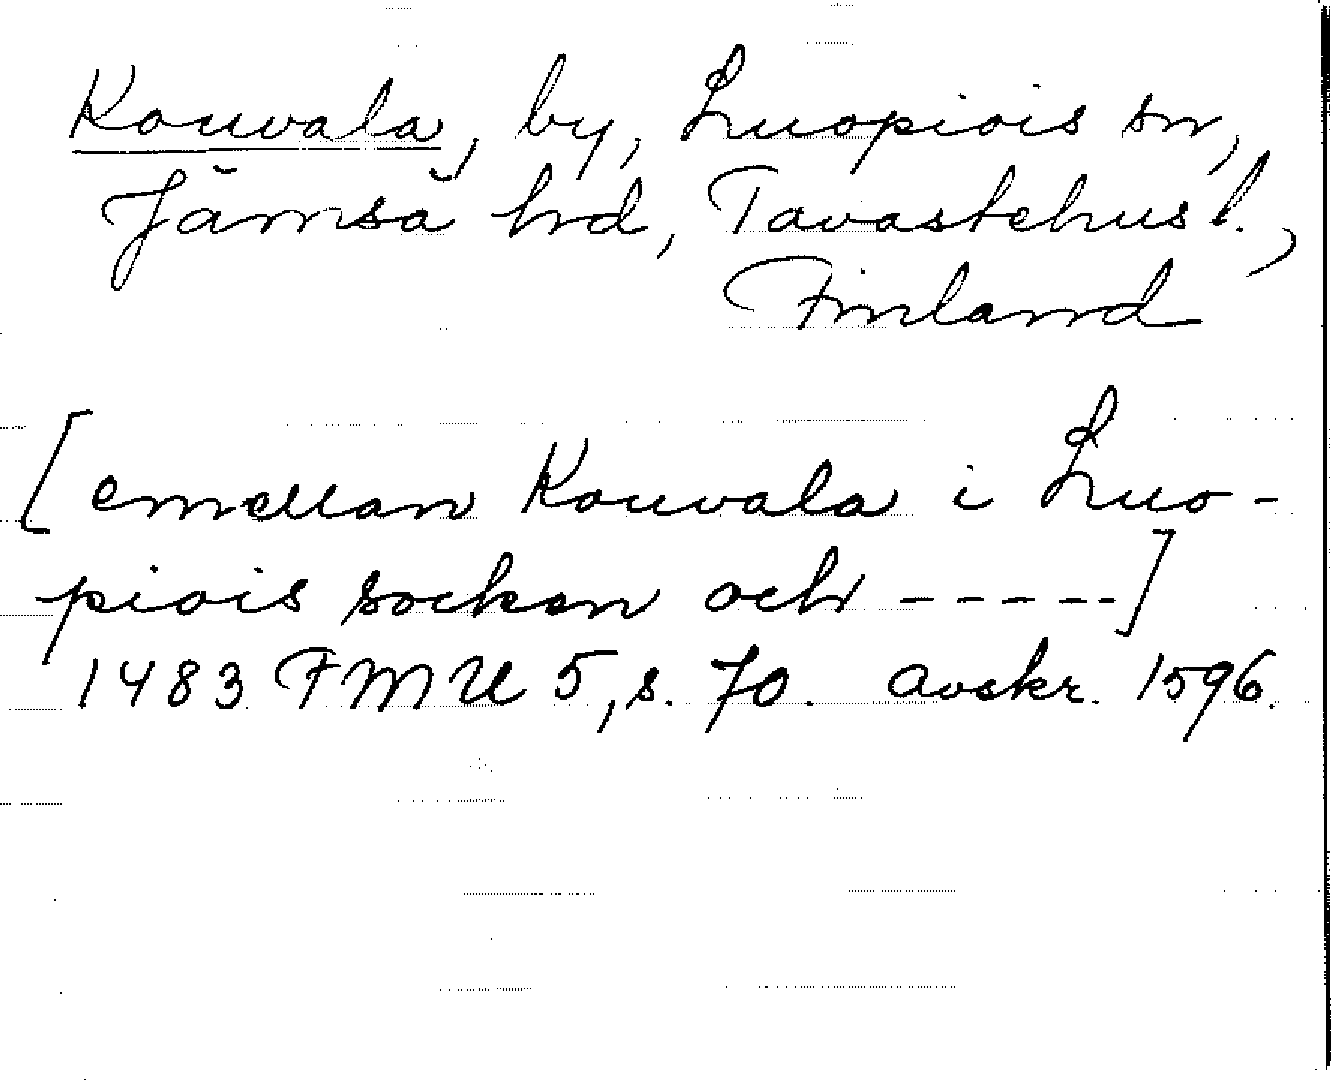 Kouvala, by, Luopiois sn,
Jämsä hrd, Tavastehus l.,
Finland
[emellan Kouvala i Luo-
piois socken och -----]
1483 FMU 5, s. 70. Avskr. 1596.